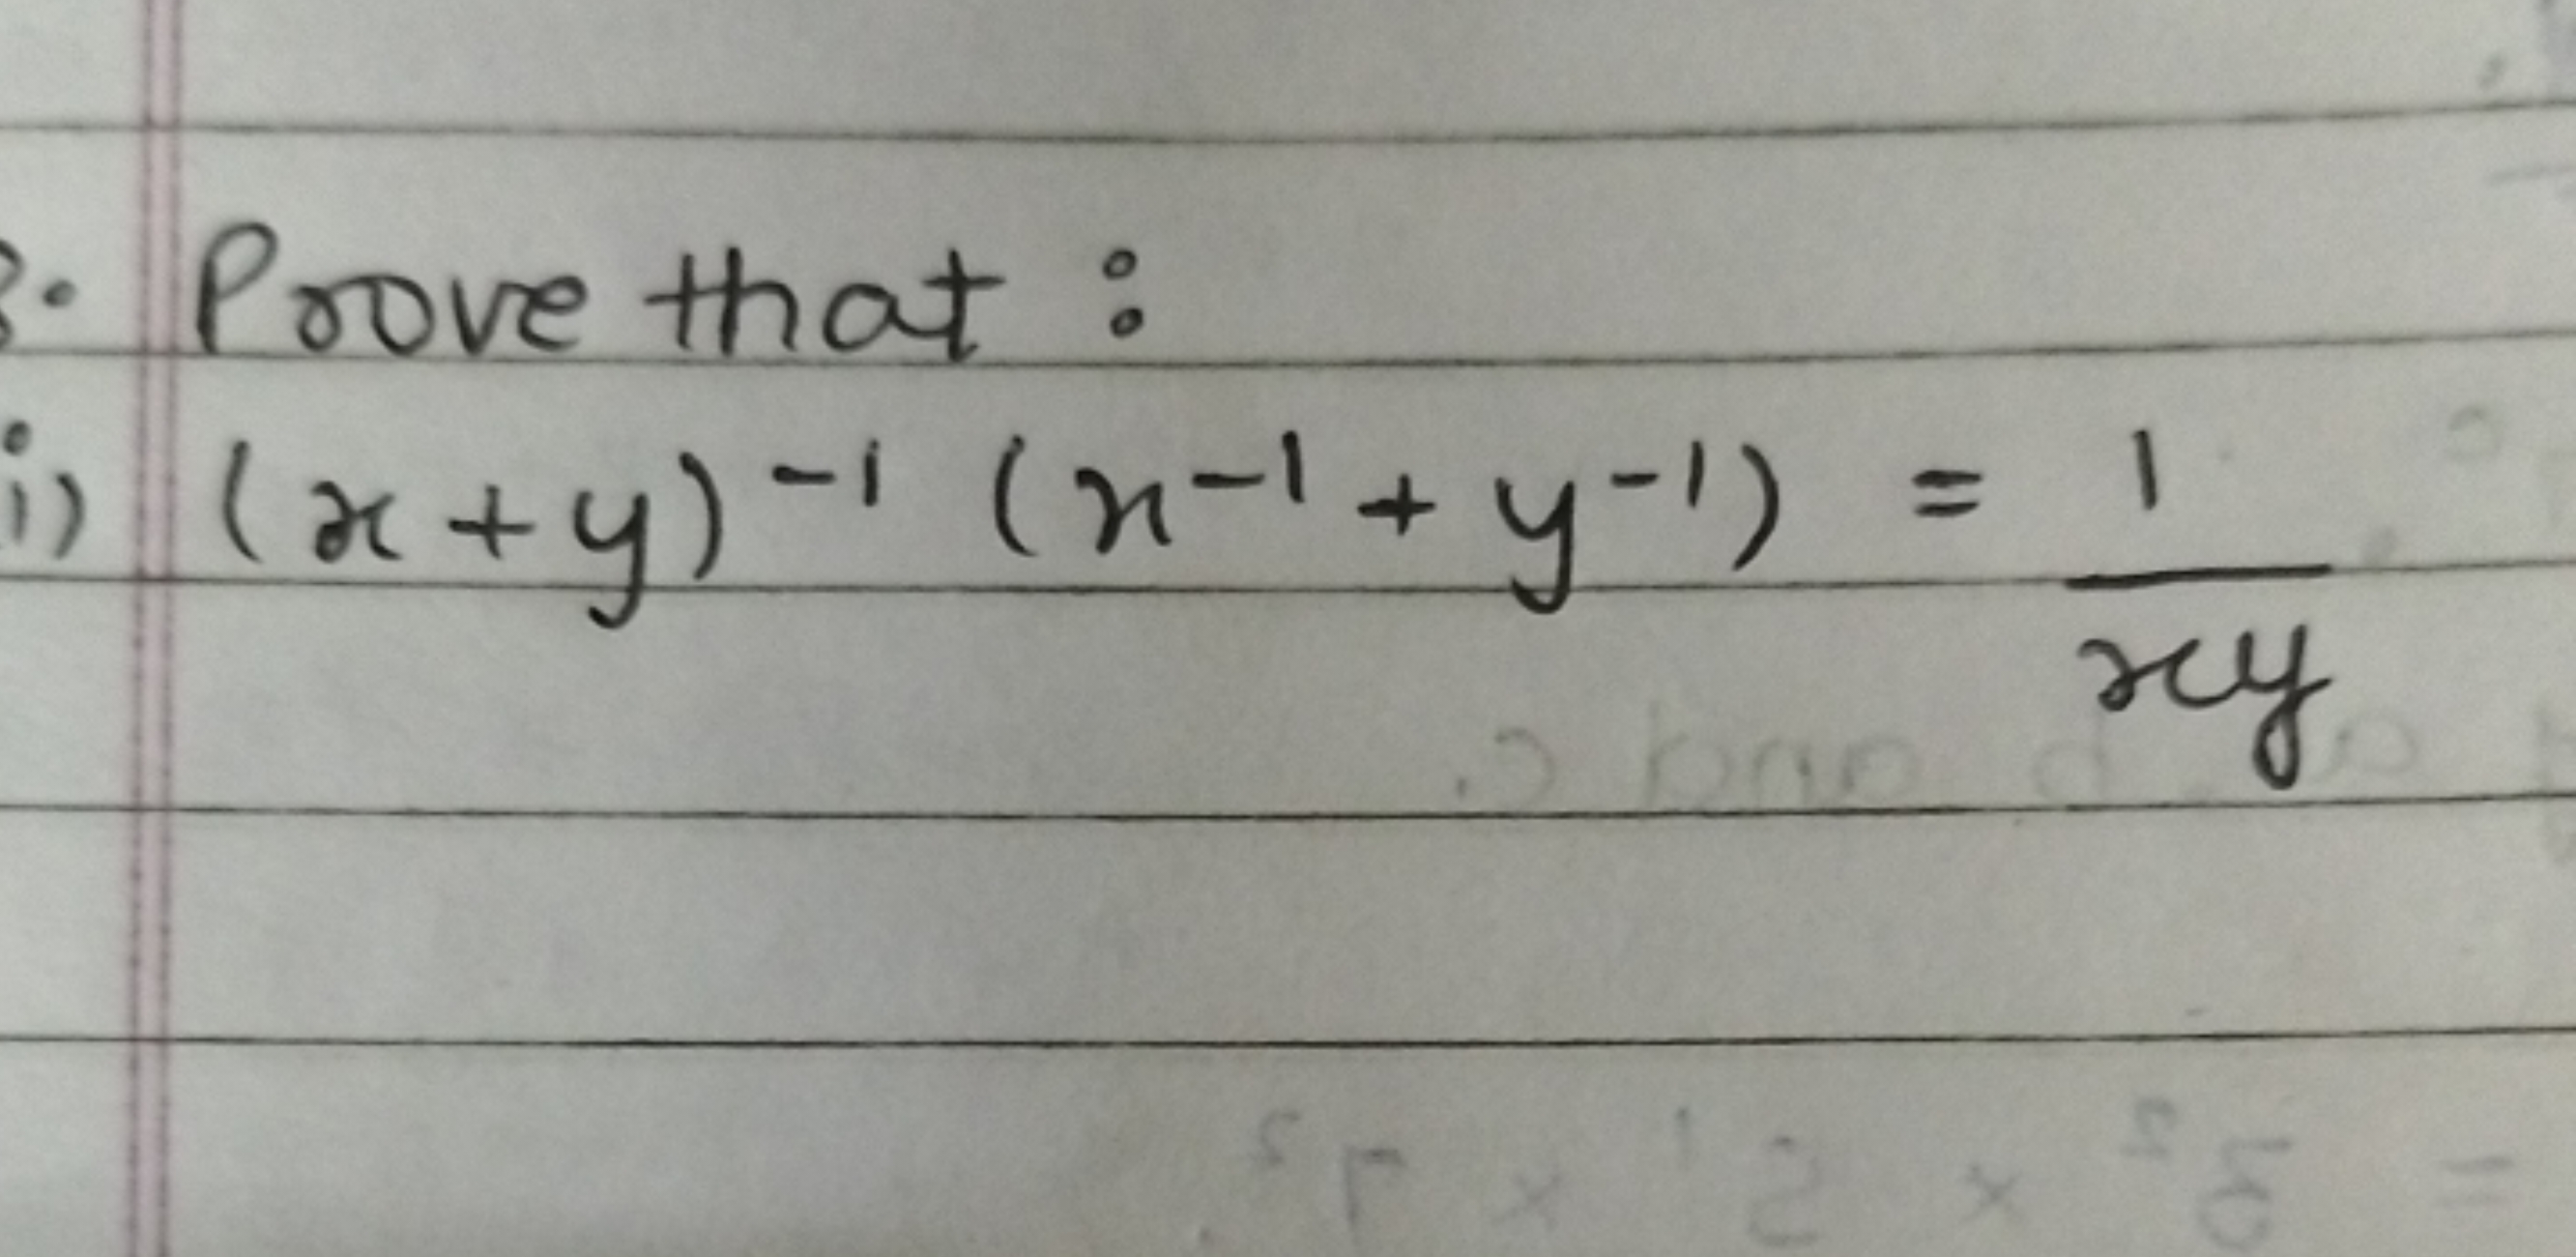 3. Prove that :
i) (x + y)⁻¹ (x⁻¹ + y⁻¹) = 1/xy